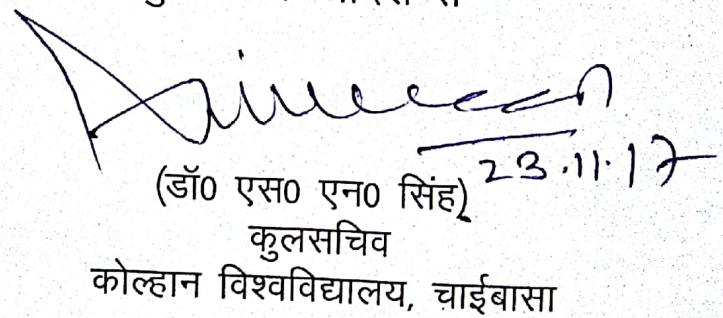 23.11.17
(डॉ0 एस0 एन0 सिंह)
कुलसचिव
कोल्हान विश्वविद्यालय, चाईबासा